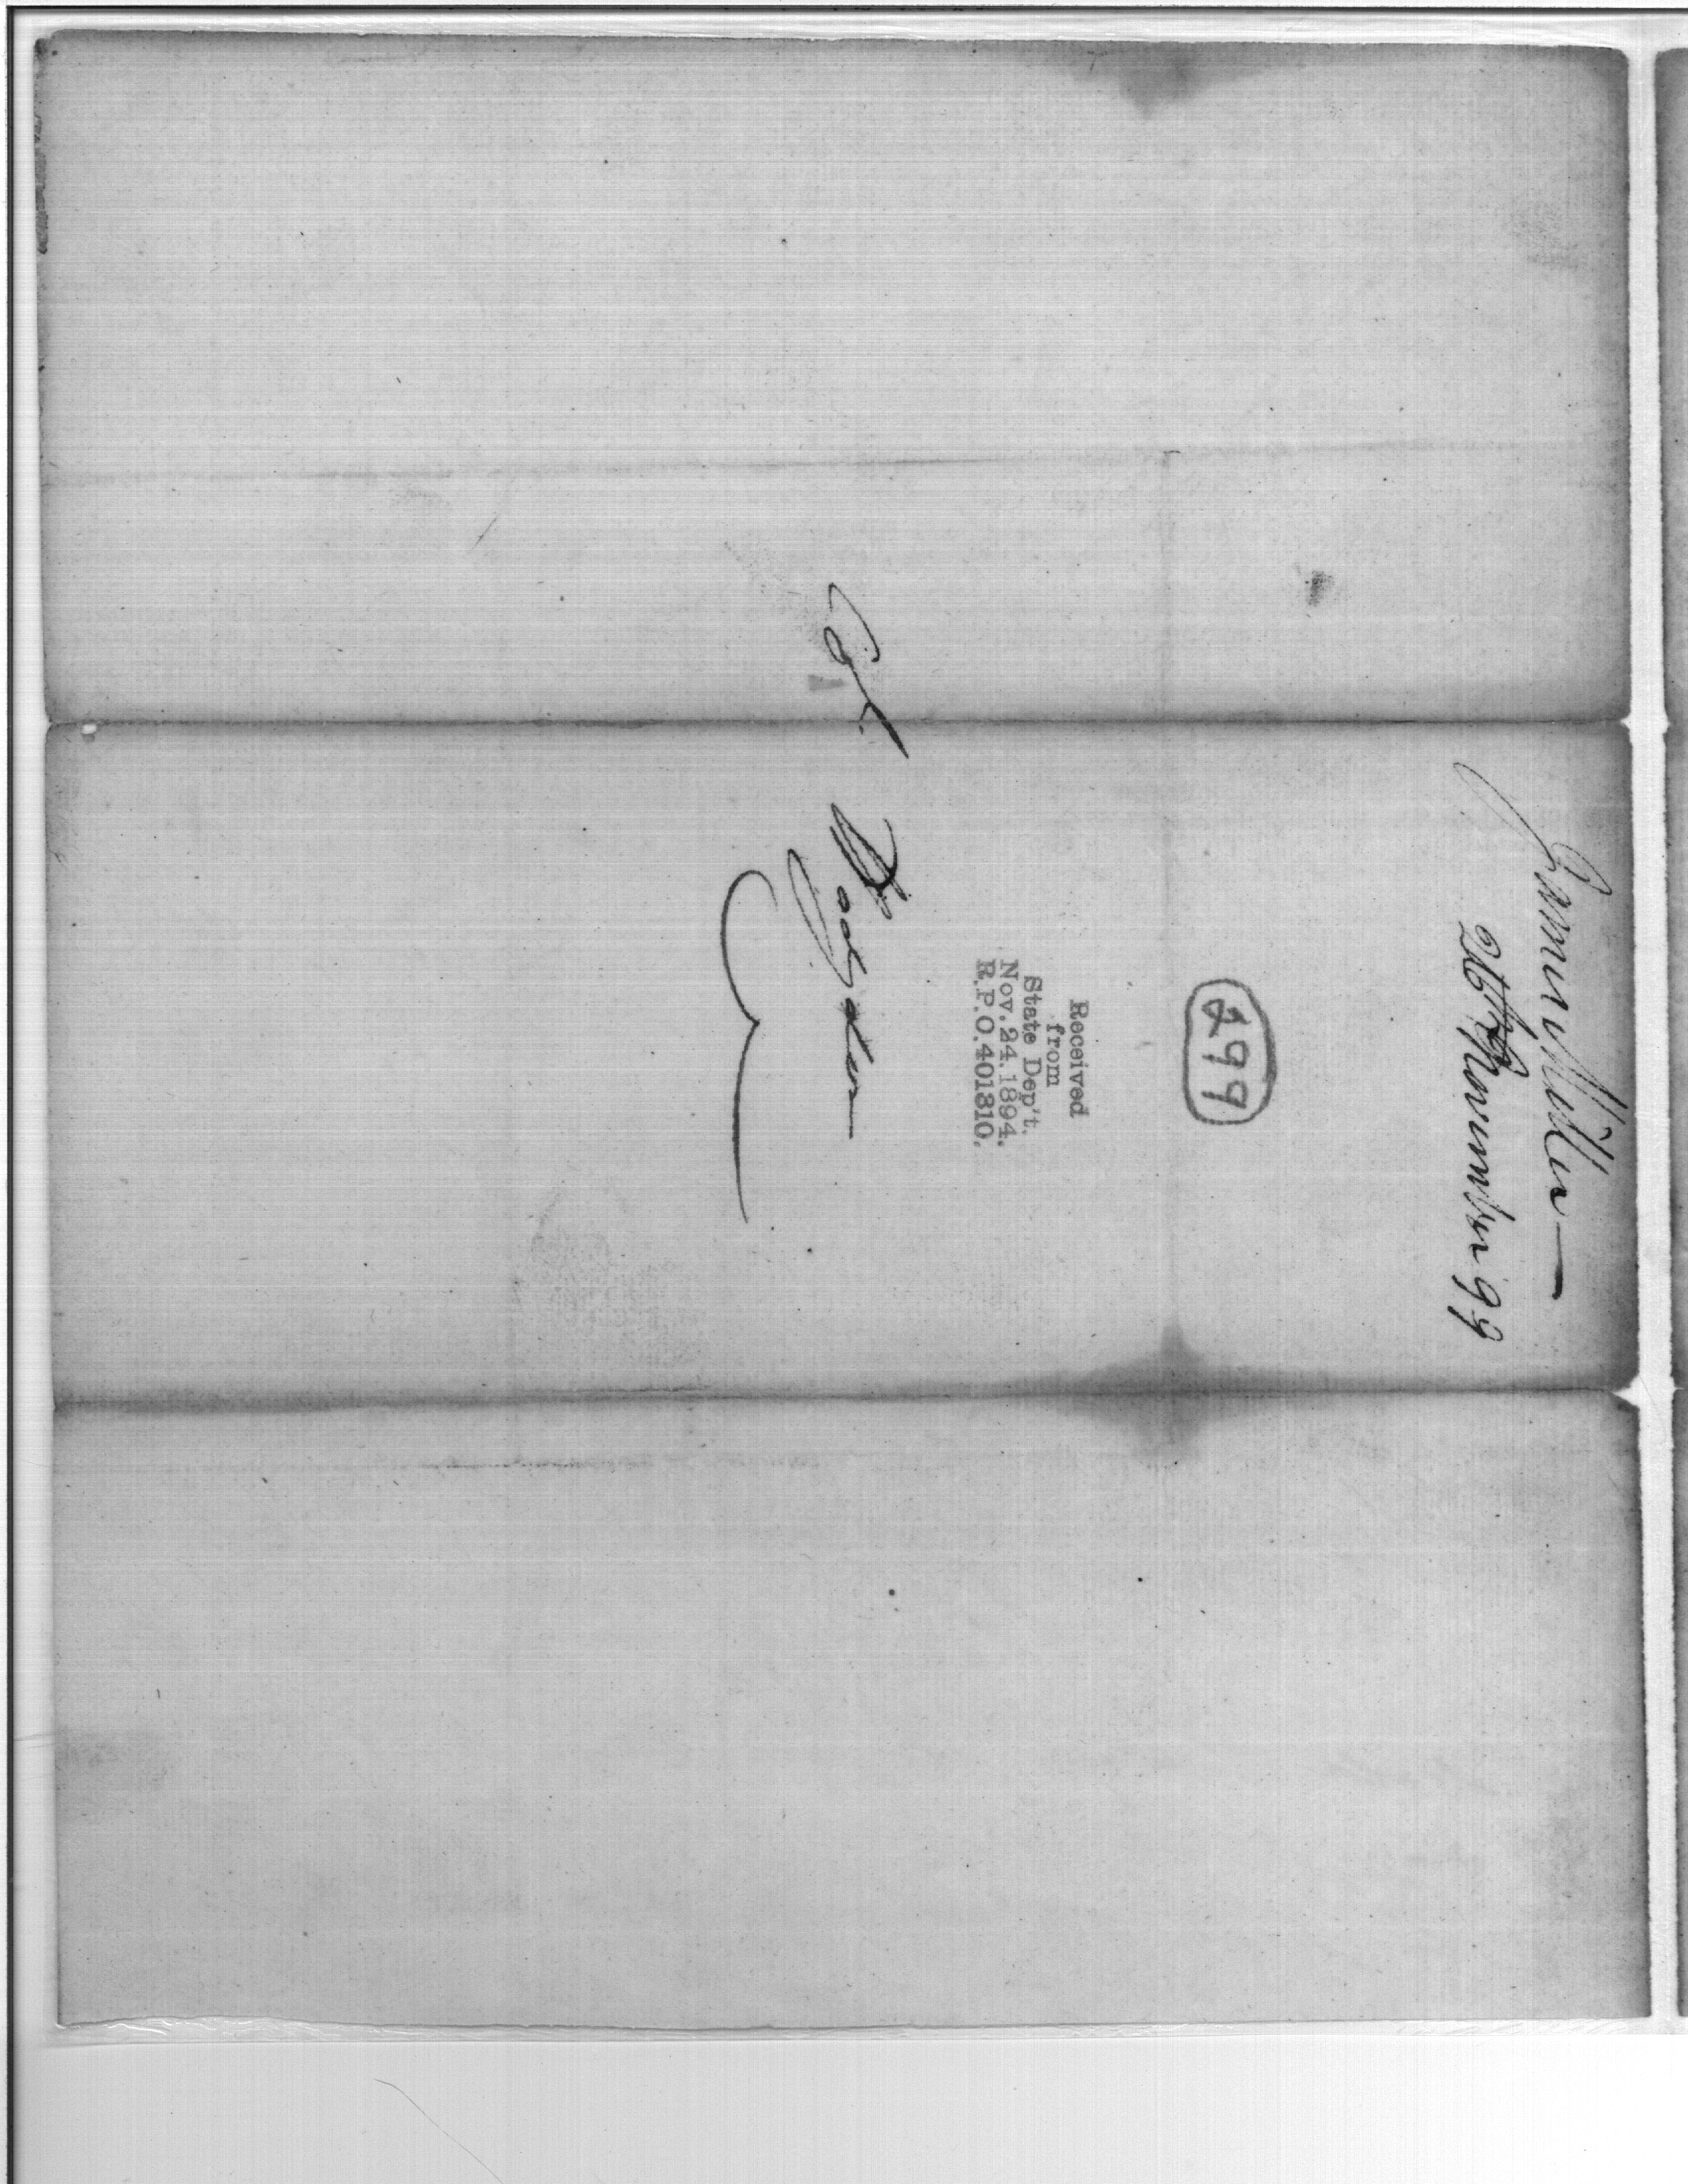 James Miller—
26th November 99
299
Received
from
State Dep't.
Nov. 24. 1894.
R.P.O. 401310.
Col.